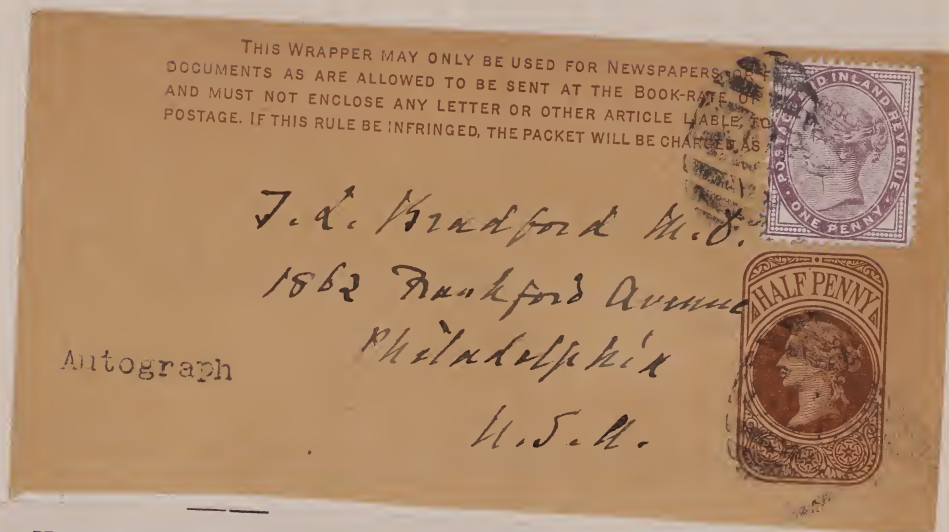 THIS WRAPPER MAY ONLY BE USED FOR NEWSPAPERS, OR
DOCUMENTS AS ARE ALLOWED TO BE SENT AT THE BOOK-RATE OF
AND MUST NOT ENCLOSE ANY LETTER OR OTHER ARTICLE LIABLE TO
POSTAGE. IF THIS RULE BE INFRINGED, THE PACKET WILL BE CHARGED AS
POSTAGE AND INLAND REVENUE
ONE PENNY
T. L. Bradford M.D.
1862 Frankford Avenue
Philadelphia
U.S.A.
HALF PENNY
Autograph